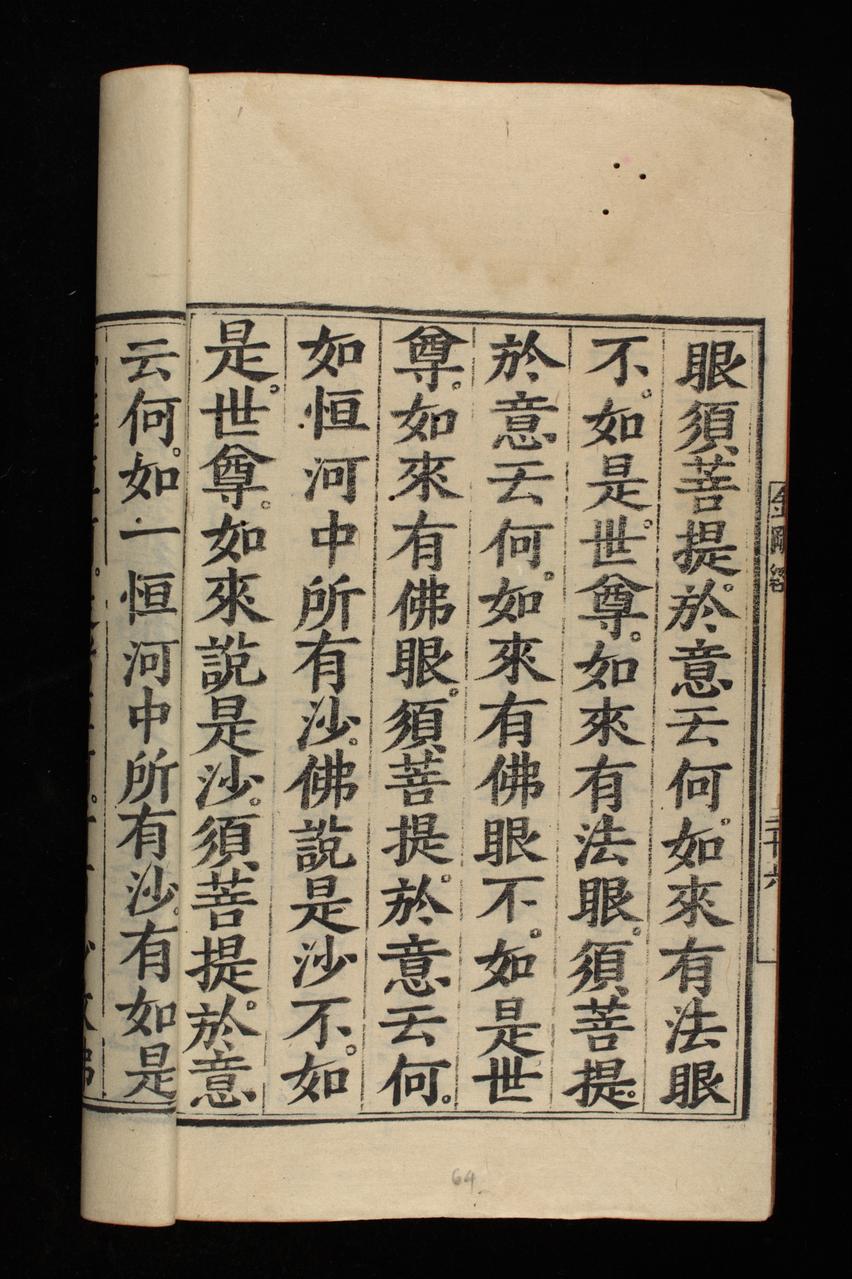 眼須菩提。於意云何。如來有法眼
不。如是。世尊。如來有法眼。須菩提。
於意云何。如來有佛眼不。如是世
尊。如來有佛眼。須菩提。於意云何。
如恒河中所有沙。佛說是沙不。如
是。世尊。如來說是沙。須菩提。於意
云何。如一恒河中所有沙。有如是
金剛經
二十六
64